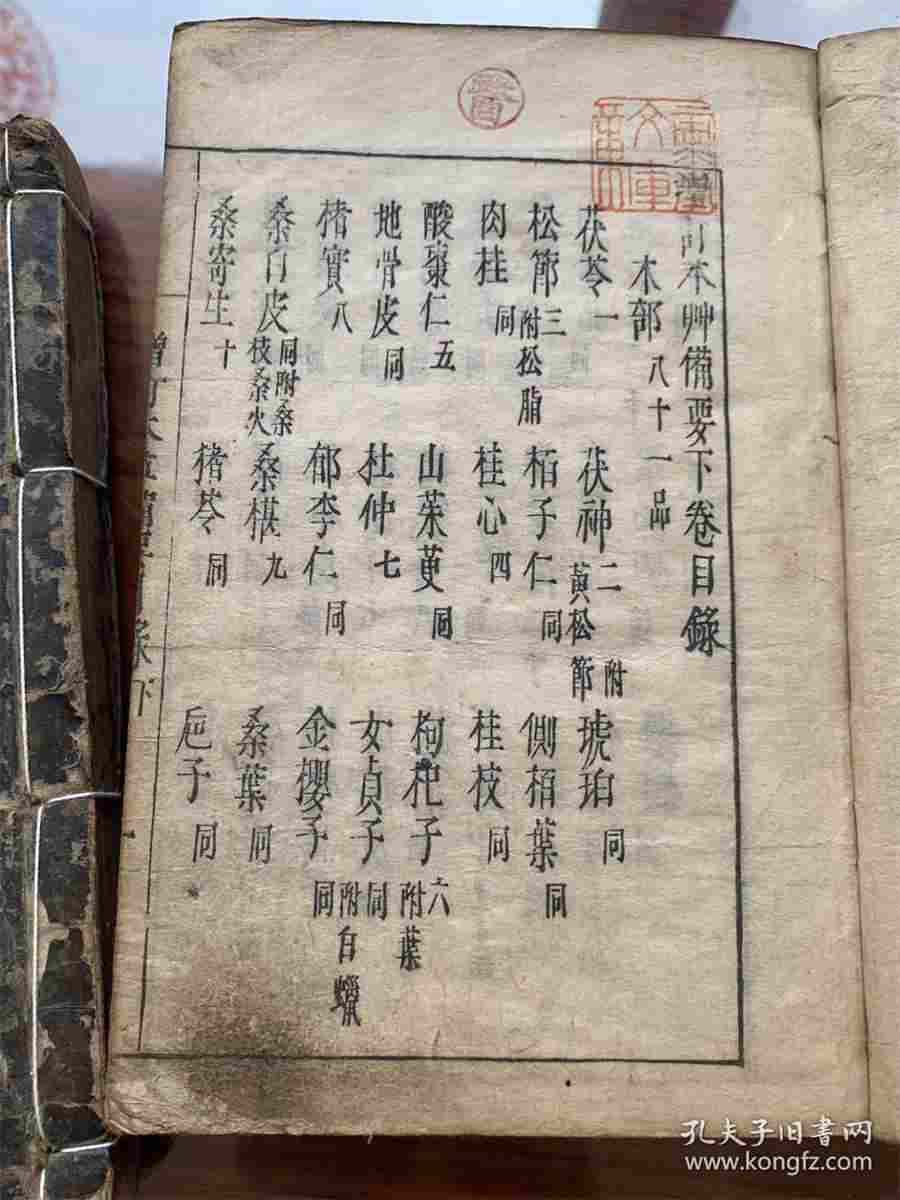 訂本艸備要下卷目錄
木部 八十一品
茯苓 一 茯神 二 附黃松節 琥珀 同
松節 三 附松脂 栢子仁 同 側栢葉 同
肉桂 同 桂心 四 桂枝 同
酸棗仁 五 山茱萸 同 枸杞子 六 附葉
地骨皮 同 杜仲 七 女貞子 同 附白蠟
楮實 八 郁李仁 同 金櫻子 同
桑白皮 同 附桑枝桑火 桑椹 九 桑葉 同
桑寄生 十 猪苓 同 巵子 同
文庫
孔夫子旧書网
www.kongfz.com